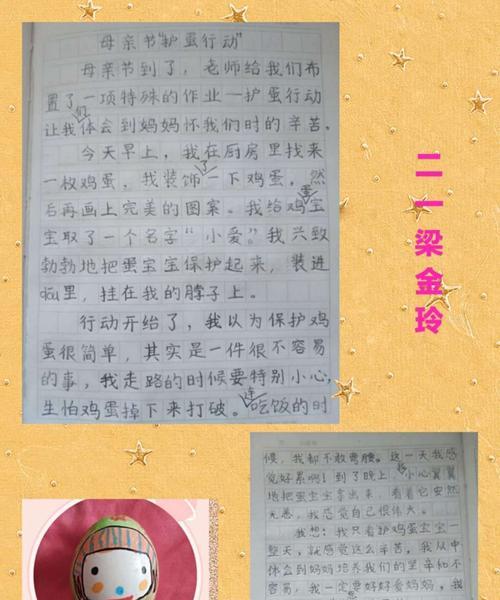 母亲节“护蛋行动”
母亲节到了，老师给我们布
置了一项特殊的作业—护蛋行动
让我们体会到妈妈怀我们时的辛苦。
今天早上，我在厨房里找来
一枚鸡蛋，我装饰了一下鸡蛋，然
后再画上完美的图案。我给鸡蛋宝
宝取了一个名字“小爱”。我兴致
勃勃地把蛋宝宝保护起来，装进
dou里，挂在我的脖子上。
行动开始了，我以为保护鸡
蛋很简单，其实是一件很不容易
的事，我走路的时候要特别小心
生怕鸡蛋掉下来打破。连吃饭的时
二一梁金玲
候，我都不敢弯腰。这一天我感
觉好累啊！到了晚上，我小心翼翼
地把蛋宝宝拿出来，看着它安然
无恙，我感觉自己很伟大。
我想：我只看护鸡蛋宝宝一
整天，就感觉这么辛苦，我从中
体会到妈妈培养我们的里辛和不
容易，我一定要好好爱妈妈，我